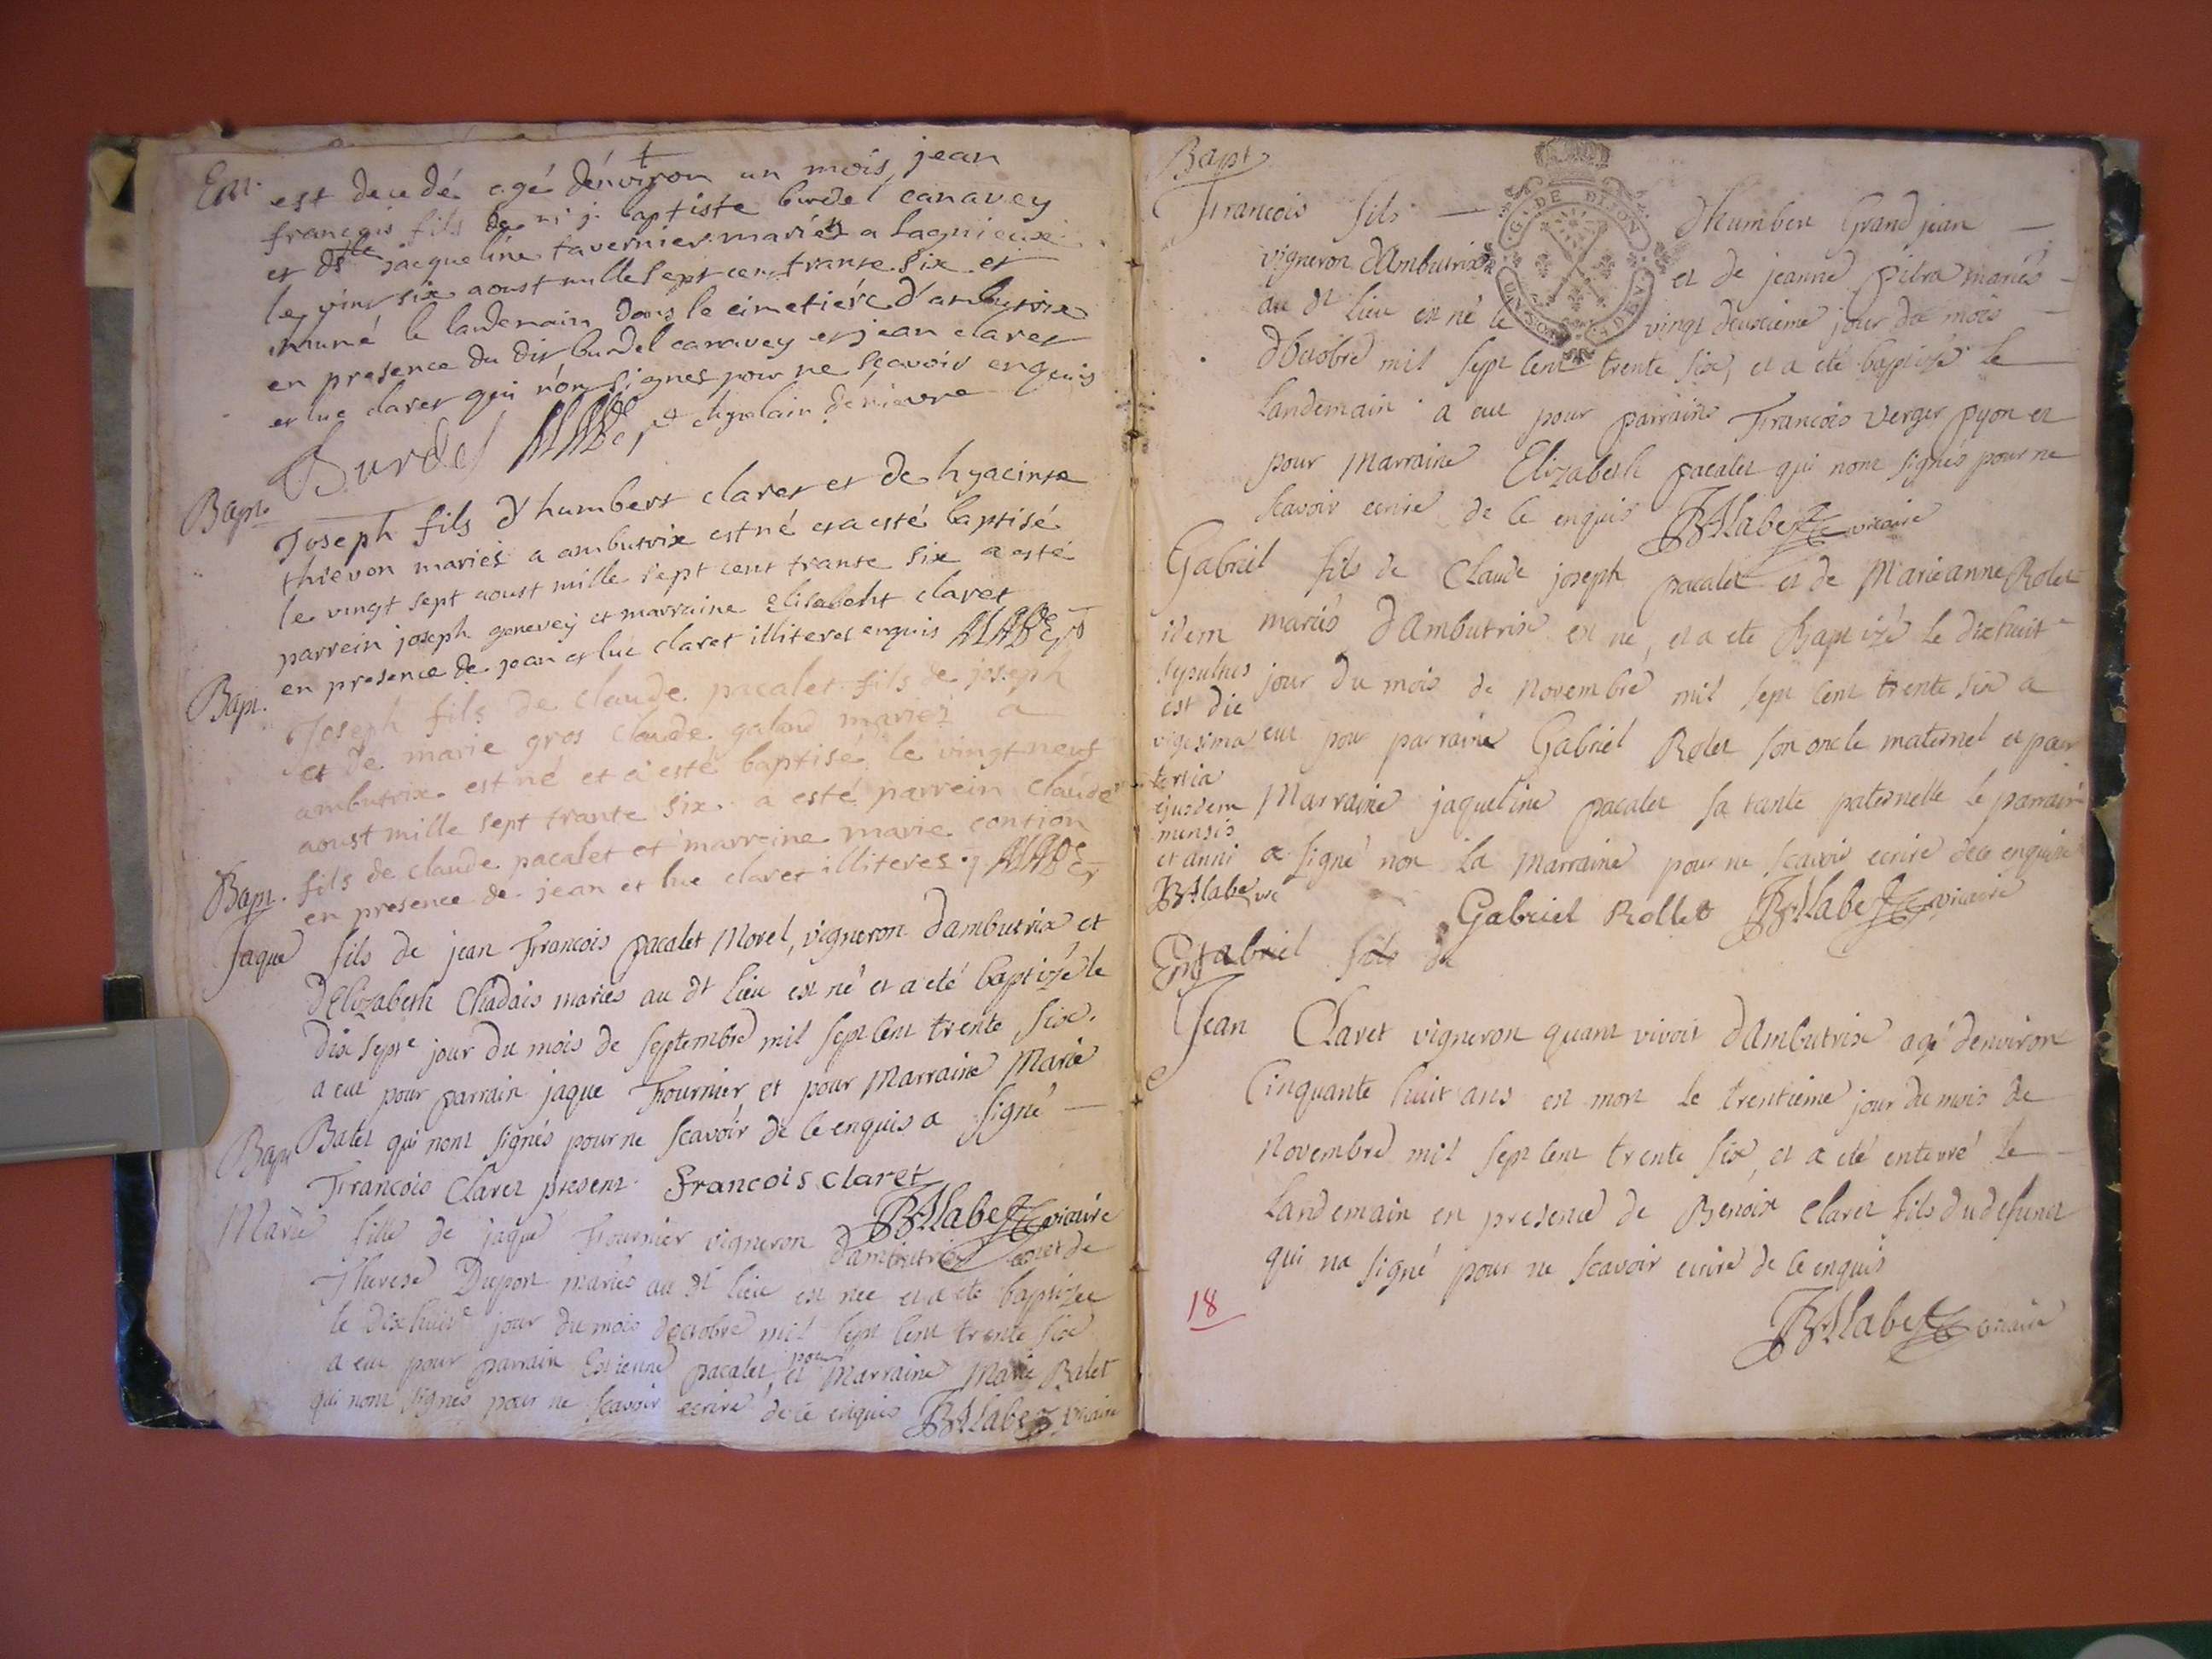 Ent.
est decedé agé d'environ un mois jean
françois fils de baptiste burdel canavey
et dlle jacqueline tavernier mariés a lagnieux
le vint six aoust mille sept cen trante six et
inumé le landemain dans le cimetiére d'ambutrix
en presence du dit burdel canavey et jean claret
et luc claret qui n'on signes pour ne sçavoir enquis
Burdel
Bapt.
Joseph fils d'humbert claret et de hyacinte
thievon mariés a ambutrix est né et a esté baptisé
le vingt sept aoust mille sept cent trante six a esté
parrein joseph genevey et marraine elisabeht claret
en presence de jean et luc claret illiteres enquis
Bapt.
Joseph fils de claude pacalet fils de joseph
et de marie gros claude galand mariez a
ambutrix est né et a esté baptisé le vingt neuf
aoust mille sept trante six. a esté parrein claude
fils de claude pacalet et marreine marie contion
en presence de jean et luc claret illiteres
Bapt.
Jaque fils de jean François pacalet Morel, vigneron dambutrix et
dElizabeth Chadais maries au dt lieu est né et a eté baptizé le
dix septe jour du mois de septembre mil sept cent trente six.
a eut pour parrain jaque Fournier et pour Marraine Marie
Batet qui nont signés pour ne scavoir de ce enquis a signé
François Claret present. francois claret
BAlabe vicaire
Bapt
Marie fille de jaque Fournier vigneron dambutrix et de
Therese Dupon mariés au dt lieu est née et a ete baptizée
le dixhuite jour du mois doctobre mil sept cent trente six
a eut pour parrain Estienne pacalet, et pour Marraine Marie Batet
qui nont signés pour ne scavoir ecrire de ce enquis BAlabe vicaire
Bapt
François fils dhumbert Grand jean
vigneron dAmbutrix et de jeanne pitra mariés
au dt lieu est né le vingt deuxieme jour du mois
dOctobre mil sept cent trente six, et a eté baptizé le
landemain a eut pour parrains François Verger pyon et
pour Marraine Elizabeth pacalet qui nont signés pour ne
scavoir ecrire de ce enquis BAlabe vicaire
G. DE DIJON
Gabriel fils de Claude joseph pacalet et de Marieanne Rolet
mariés dAmbutrix est né, et a ete Baptizé le dixhuite
jour du mois de Novembre mil sept cent trente six a
eut pour parraine Gabriel Rolet son oncle maternel et pour
Marraine jaqueline pacalet sa tante paternelle le parrain
a signé non la Marraine pour ne scavoir ecrire de ce enquise
Gabriel Rollet BAlabe vicaire
idem
sepultus
est die
vigesima
tertia
ejusdem
mensis
et anni
BAlabe vre
Gabriel fils de
Ent
Jean Claret vigneron quant vivoit dAmbutrix agé denviron
Cinquante huit ans est mort le trentieme jour du mois de
Novembre mil sept cent trente six, et a eté enterré le
Landemain en presence de Benoix Claret fils du defunct
qui na signé pour ne scavoir ecrire de ce enquis
BAlabe vicaire
18